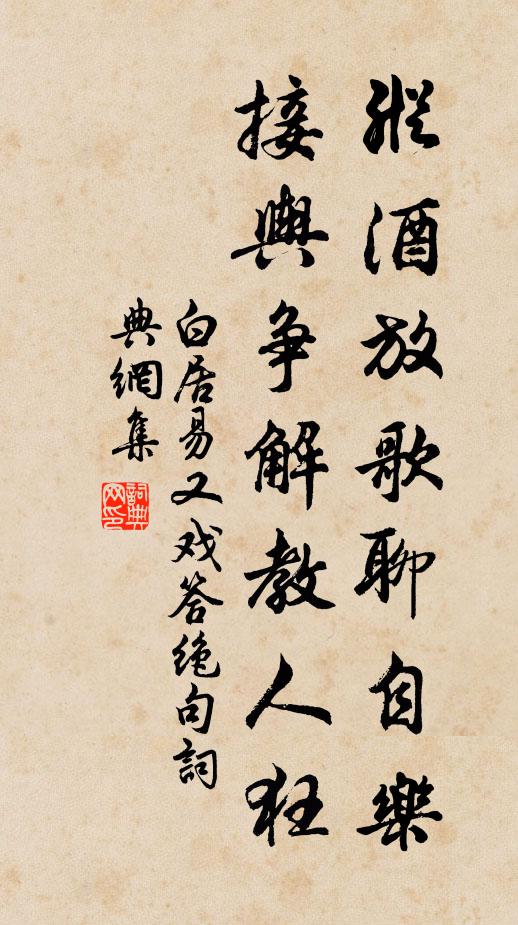 縱酒放歌聊自樂
接輿争解教人狂
白居易又戏答绝句詞
典網集
詞典
网印